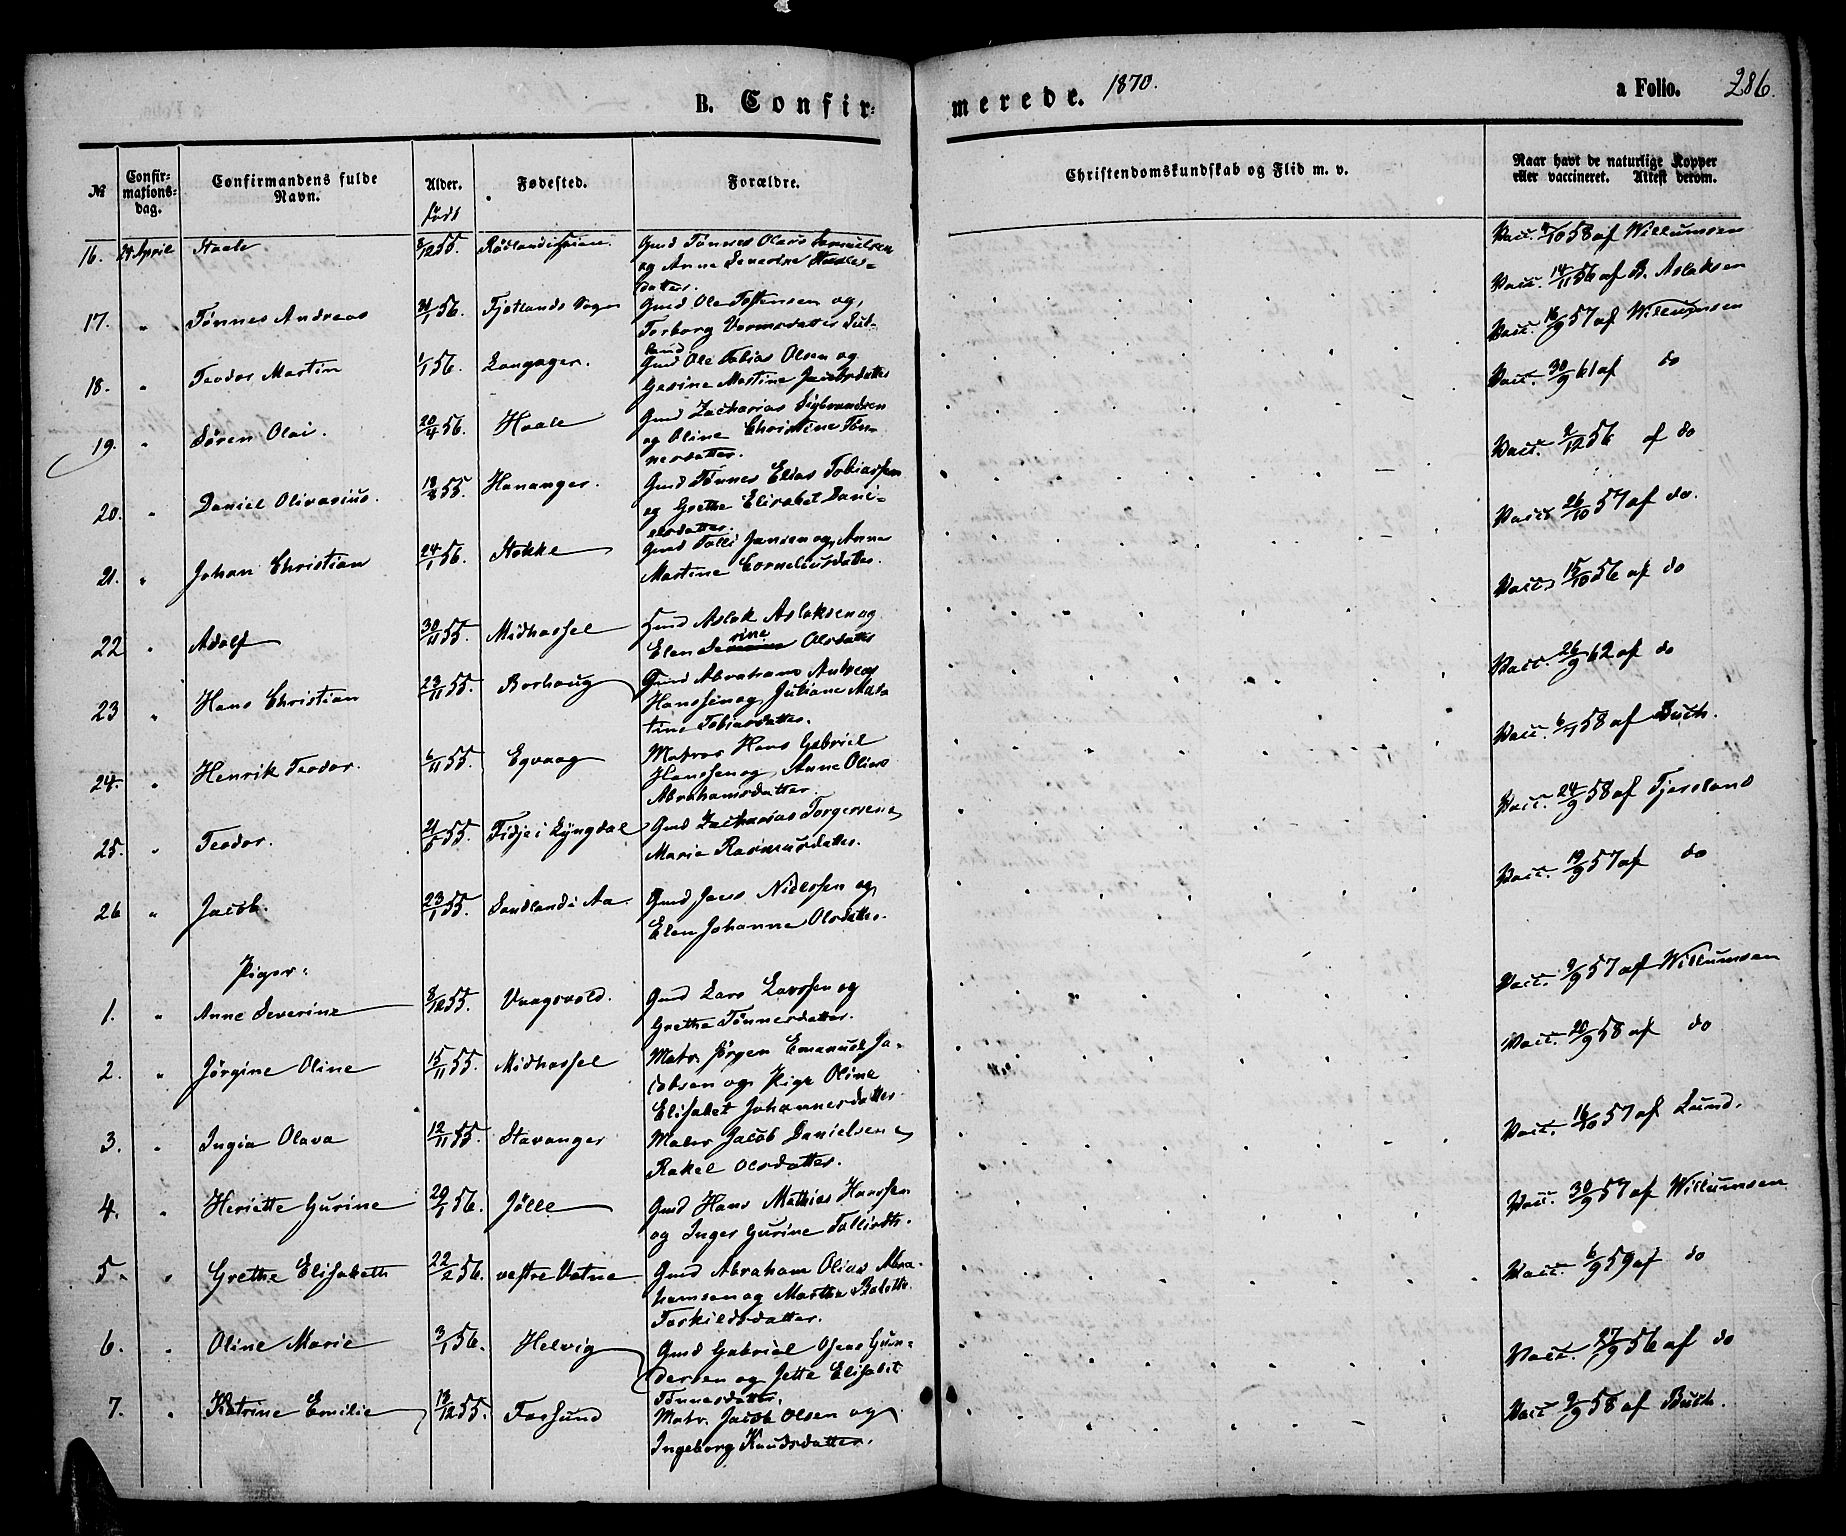 B. Confir-
merede. 1870.
a Folio. 286.
№
Confir-
mations-
dag.
Confirmandens fulde
Navn.
Alder.
født
Fødested.
Forældre.
Christendomskundskab og Flid m. v.
Naar havt de naturlige Kopper
eller vaccineret. Attest derom.
16. 24 April Staale 8/12 55. Gmd Tønnes Olaus Samuelsen
og Anne Severine Staales-
datter.
Vacc. 58 af Willumsen
17. " Tønnes Andreas 31/1 56. Fjotlands Sogn Gmd Ole Tostensen og
Torborg
land
Vacc. 14/11 56 af B. Aslaksen
18. " Teodor Martin 1/1 56. Langager. Gmd Ole Tobias Olsen og
Gesine Martine Jacobsdatter
Vacc. 16/9 57 af Willumsen
19. " Søren Olai. 20/4 56. Haale Gmd Zacharias Sigbrandsen
og Oline Christine Tøn-
nesdatter.
Vacc. 30/9 61 af do
20. " Daniel Olivarius. 18/8 55. Hananger. Gmd Tønnes Elias Tobiassen
og Grethe Elisabet Dani-
elsdatter.
Vacc. 2/12 56 af do
21. " Johan Christian 24/1 56. Stokke Gmd Tolli Jansen og Anne
Martine Corneliusdatter.
Vacc. 26/10 57 af do.
22 " Adolf 30/11 55. Midhassel Gmd Aslak Aslaksen og
Elen Severine Olsdatter
Vacc. 15/10 56 af do
23 " Hans Christian 23/11 55. Borhaug Gmd Abraham Andreas
Hanssen og Juliane Mar-
tine Tobiasdatter.
Vacc. 26/9 62 af do
24. " Henrik Teodor. 6/11 55. Egvaag Matros Hans Gabriel
Hanssen og Anne Olias
Abrahamsdatter.
Vacc. 58 af Buch.
25. " Teodor. 55. Fidje i Lyngdal Gmd Zacharias Torgersen
Marie Rasmusdatter.
Vacc. 24/9 58 af Tjersland
26 " Jacob. 23/1 55. Sandland i Aa. Gmd Jacob Nielssen og
Elen Johanne Olsdatter.
Vacc. 19/9 57 af do
Piger.
1. " Anne Severine 8/12 55. Vaagsvold. Gmd Lars Larssen og
Grethe Tønnesdatter.
Vacc. 9/9 57 af Willumsen
2. " Jørgine Oline 15/11 55. Midhassel Matr. Jørgen Emanuel Ja-
cobsen og Pige Oline
Elisabet Johannesdatter.
Vacc. 20/9 58 af do
3. " Ingia Olava 12/11 55. Stavanger Maler Jacob Danielsen
Rakel Olsdatter.
Vacc. 16/10 57 af Lund.
4. " Heriette Gurine 29/1 56. Jølle Gmd Hans Mathias Hanssen
og Inger Gurine Tollisdtr.
Vacc. 30/9 57 af Willumsen
5. " Grethe Elisabeth 22/2 56. vestre Vatne Gmd Abraham Olias Abra-
hamsen og Marthe Bolette
Torkildsdatter.
Vacc. 6/9 59 af do
6. " Oline Marie 3/1 56. Helvig Gmd Gabriel Oseas Gun-
dersen og Jette Elisabet
Tønnesdatter.
Vacc. 27/9 56 af do
7. " Katrine Emilie 13/12 55. Farsund Matr. Jacob Olsen og
Ingeborg Knudsdatter.
Vacc. 9/9 58 af Buch.